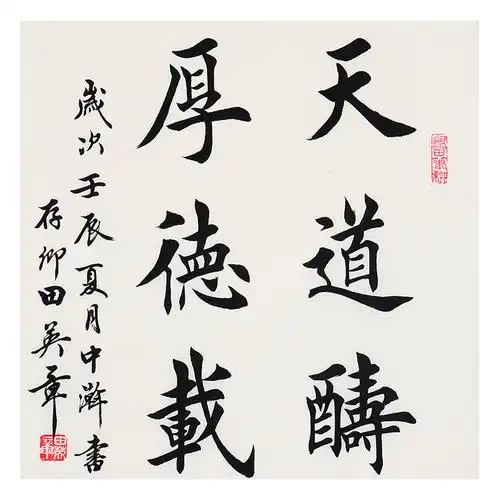 天道醻
厚德載
歲次壬辰夏月中澣書
存卿田英章